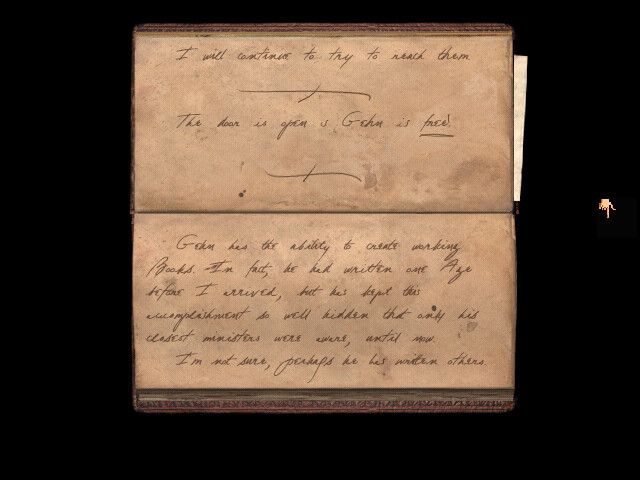 I will continue to try to reach them
The door is open & Gehn is free!
Gehn has the ability to create working
Books. In fact, he had written one Age
before I arrived, but has kept this
accomplishment so well hidden that only his
closest ministers were aware, until now.
I'm not sure, perhaps he has written others.